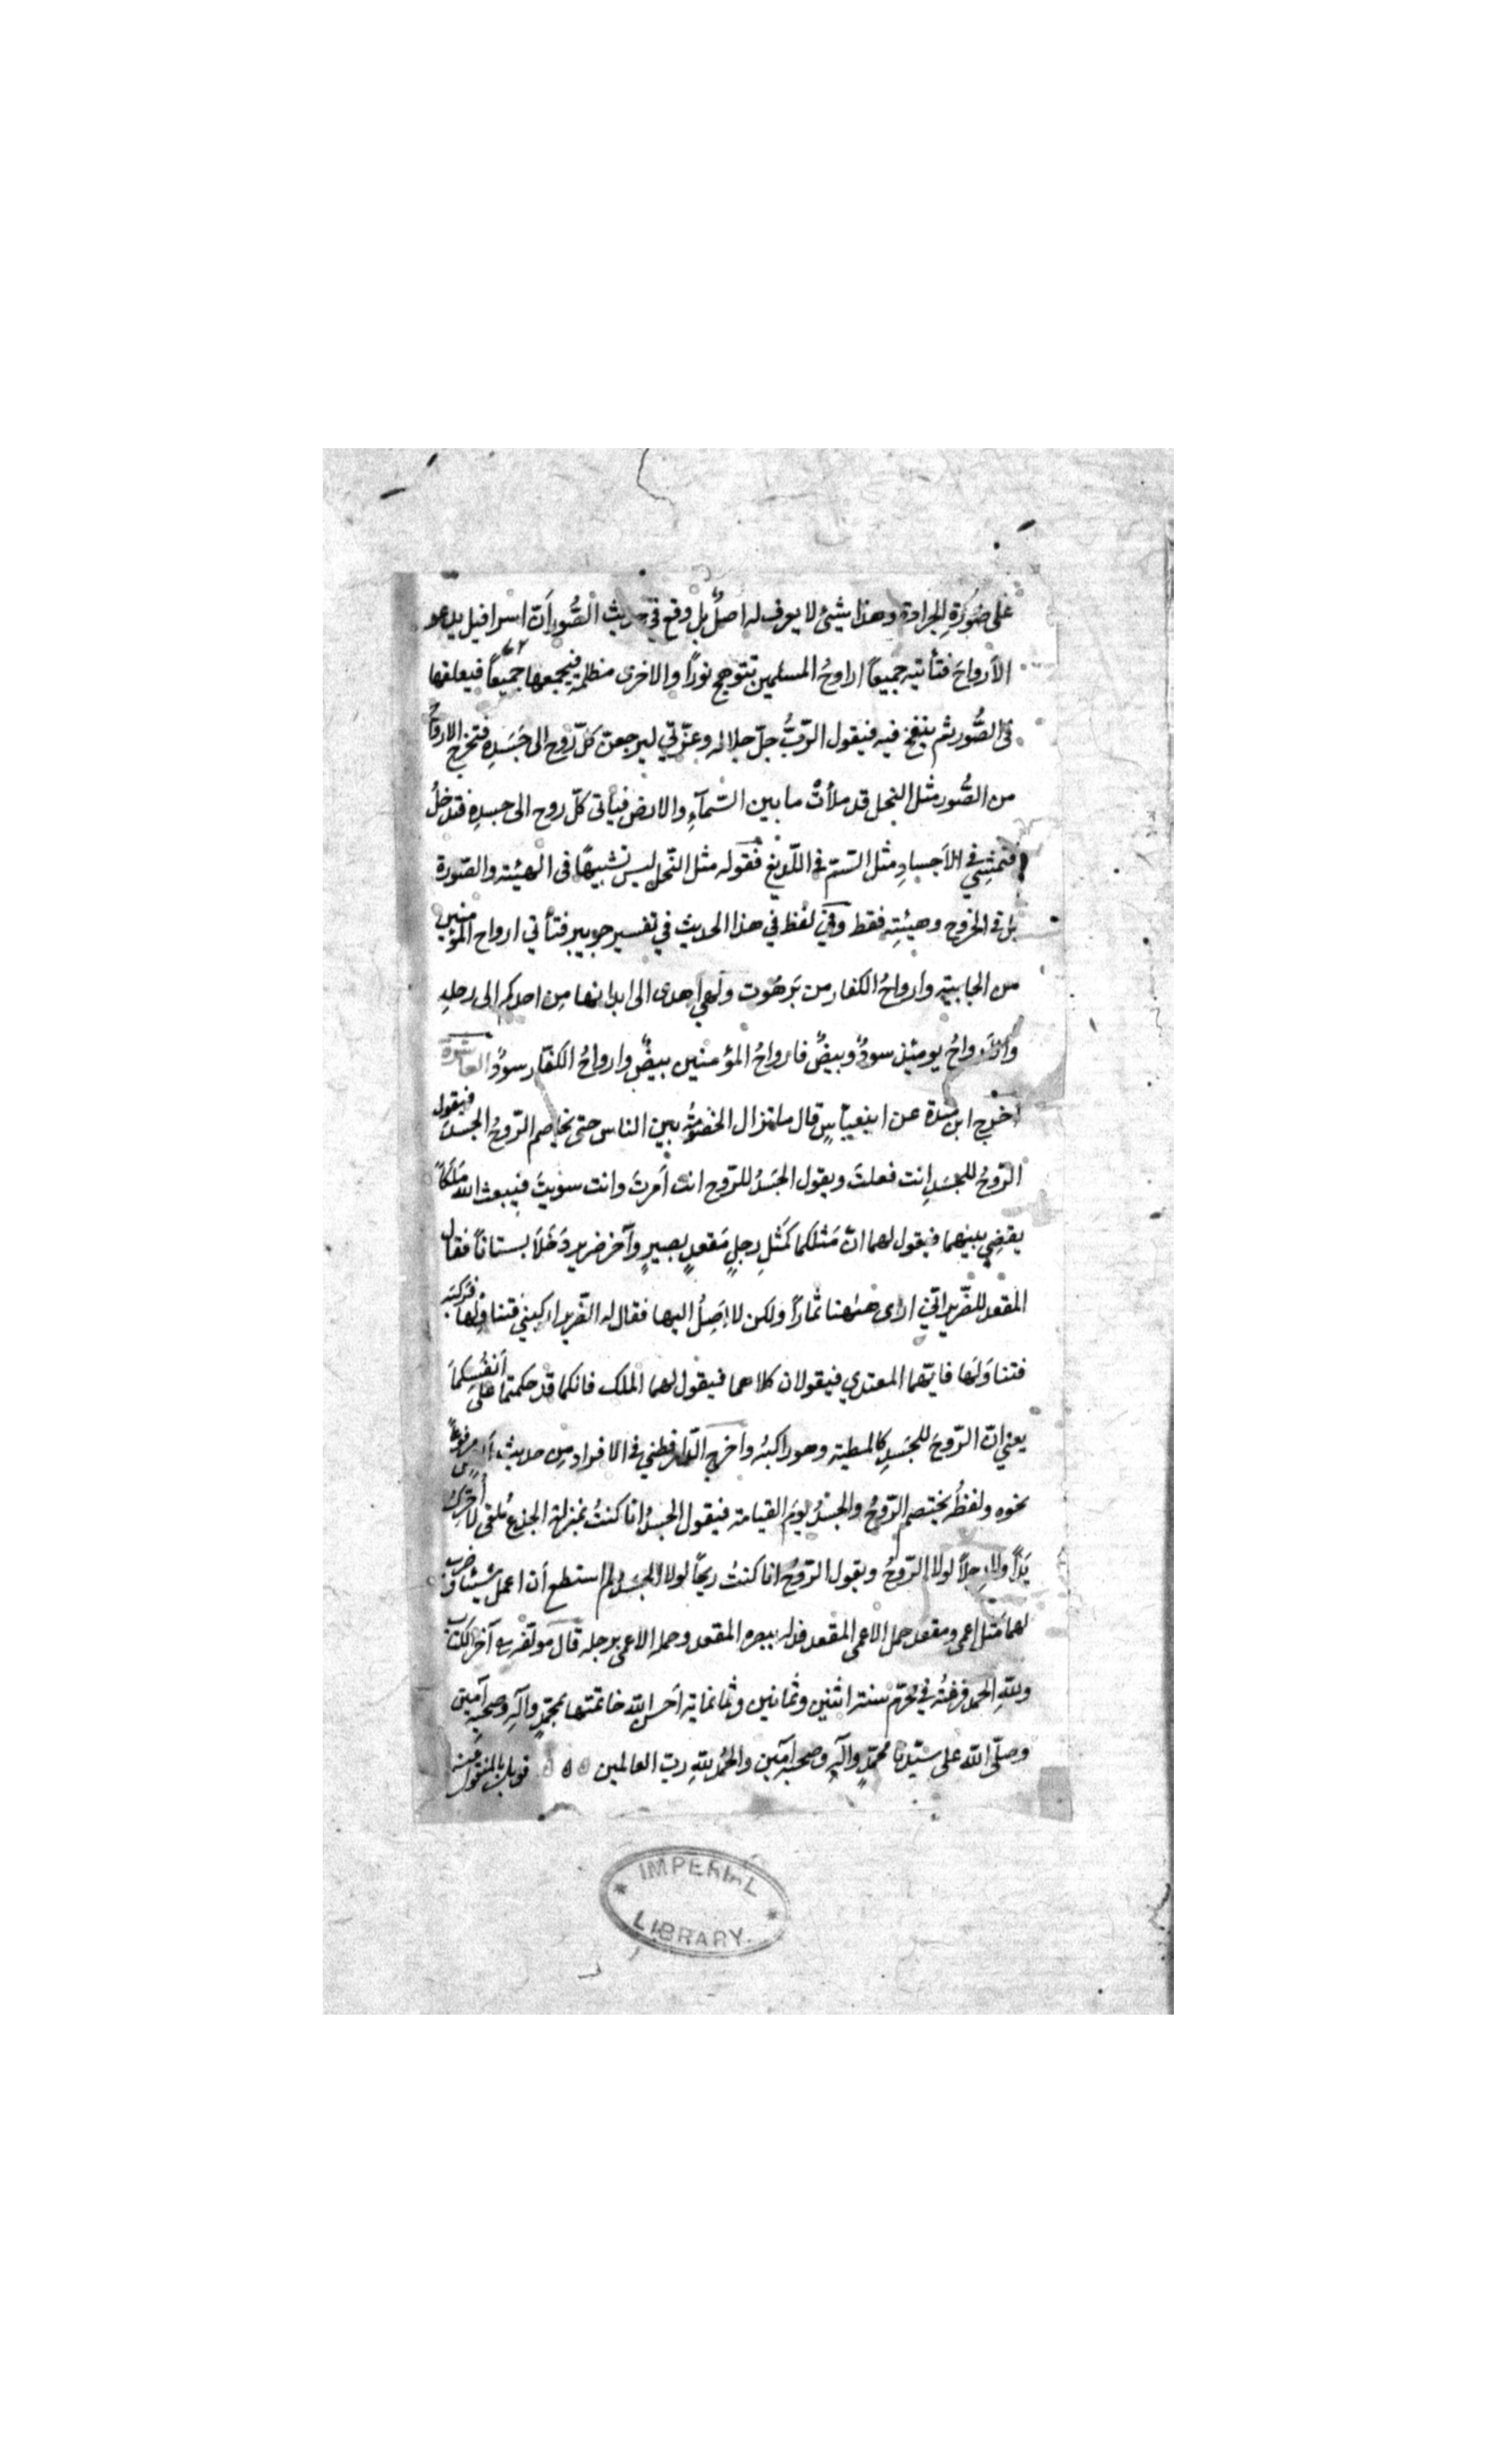 على صُورَةِ الجرادة وهذا شيئٌ لا يعرف له اصلٌ بل وقع في حديث الصُّور أنّ اسرافيل يدعو
الأرواحَ فتأتيه جميعاً ارواحُ المسلمين تتوهج نوراً والاخرى مظلمة فيجمعها جميعاً فيعلقها
في الصُّور ثم ينفخ فيه فيقول الرّبُّ جلّ جلاله وعزّتي ليرجعنّ كلّ رُوح الى جَسَدِه فتخرج الارواحُ
من الصُّور مثل النحل قد ملأتْ ما بين السّمآءِ والارض فيأتى كلّ روح الى جسدِه فتدخلُ
فتمشِي في الأجسادِ مثل السّمّ في اللّديغ فقوله مثل النّحل ليس تشبيهًا فى الهيئته والصّورة
بل في الخروج وهيئتِه فقط وفي لفظ في هذا الحديث في تفسير جويبر فتأتي ارواح المؤمنين
من الجابيته وارواحُ الكفار من بَرَهُوت ولهي اهدى الى ابدانها مِن احدكم الى رحلِه
والأرواحُ يومئذ سودٌ وبيضٌ فارواحُ المؤمنين بيضٌ وارواحُ الكفّار سودٌ العاشرة
اخرج ابن مندة عن ابنعبّاسٍ قال ما تزال الخصُومَةُ بين الناس حتى يخاصم الرّوحُ الجسدَ فيقول
الرّوحُ للجسَدِ انت فعلتَ ويقول الجسَدُ للرّوح انت اَمرتَ وانت سوّيتَ فيبعث الله مَلَكاً
يقضِي بينهما فيقول لهما انّ مَثلَكما كمَثلِ رجلٍ مَقعدٍ بصيرٍ وآخر ضرير دَخَلاَ بستاناً فقال
المقعد للضّرير انّي ارى ههُنا ثماراً ولكن لا اَصِلُ اليها فقال له الضّرير اركبني فتناولها فركبَه
فتناوَلَها فايّهما المعتدي فيقولان كلاهما فيقول لهما الملك فانكما قد حكمتما على أنفُسِكمَا
يعني انّ الرّوحَ للجسَدِ كالمطيته وهو راكبُه واخرج الدّارقطني في الافراد من حديث أنسٍ مرفوعاً
نحوه ولفظُه يختصم الرّوحُ والجسَدُ يومَ القيامة فيقول الجسدُ انا كنتُ بمنزلة الجذع مُلقى لا أحرّكُ
يَدًا ولا رِجلاً لولا الرّوحُ ويقول الرّوحُ انا كنتُ ريحًا لولا الجسَد لم استطع أن اعمل شيئا فضرب
لهما مَثل اعمى ومقعد حمل الاعمى المقعد فدله ببصره المقعد وحمله الاعمى برجله قال مؤلفه آخر الكتاب
وللهِ الحمد فرغتُه في محرّم سنته اثنين وثمانين وثمانماية اَحسن الله خاتمتها بمحمّدٍ وآلِه وصحبِه آمين
وصلّى الله على سيّدنا محمّدٍ وآلِه وصحبِه آمين والحمد للهِ ربّ العالمين
قوبل بالمنقول منه
IMPERIAL
LIBRARY.